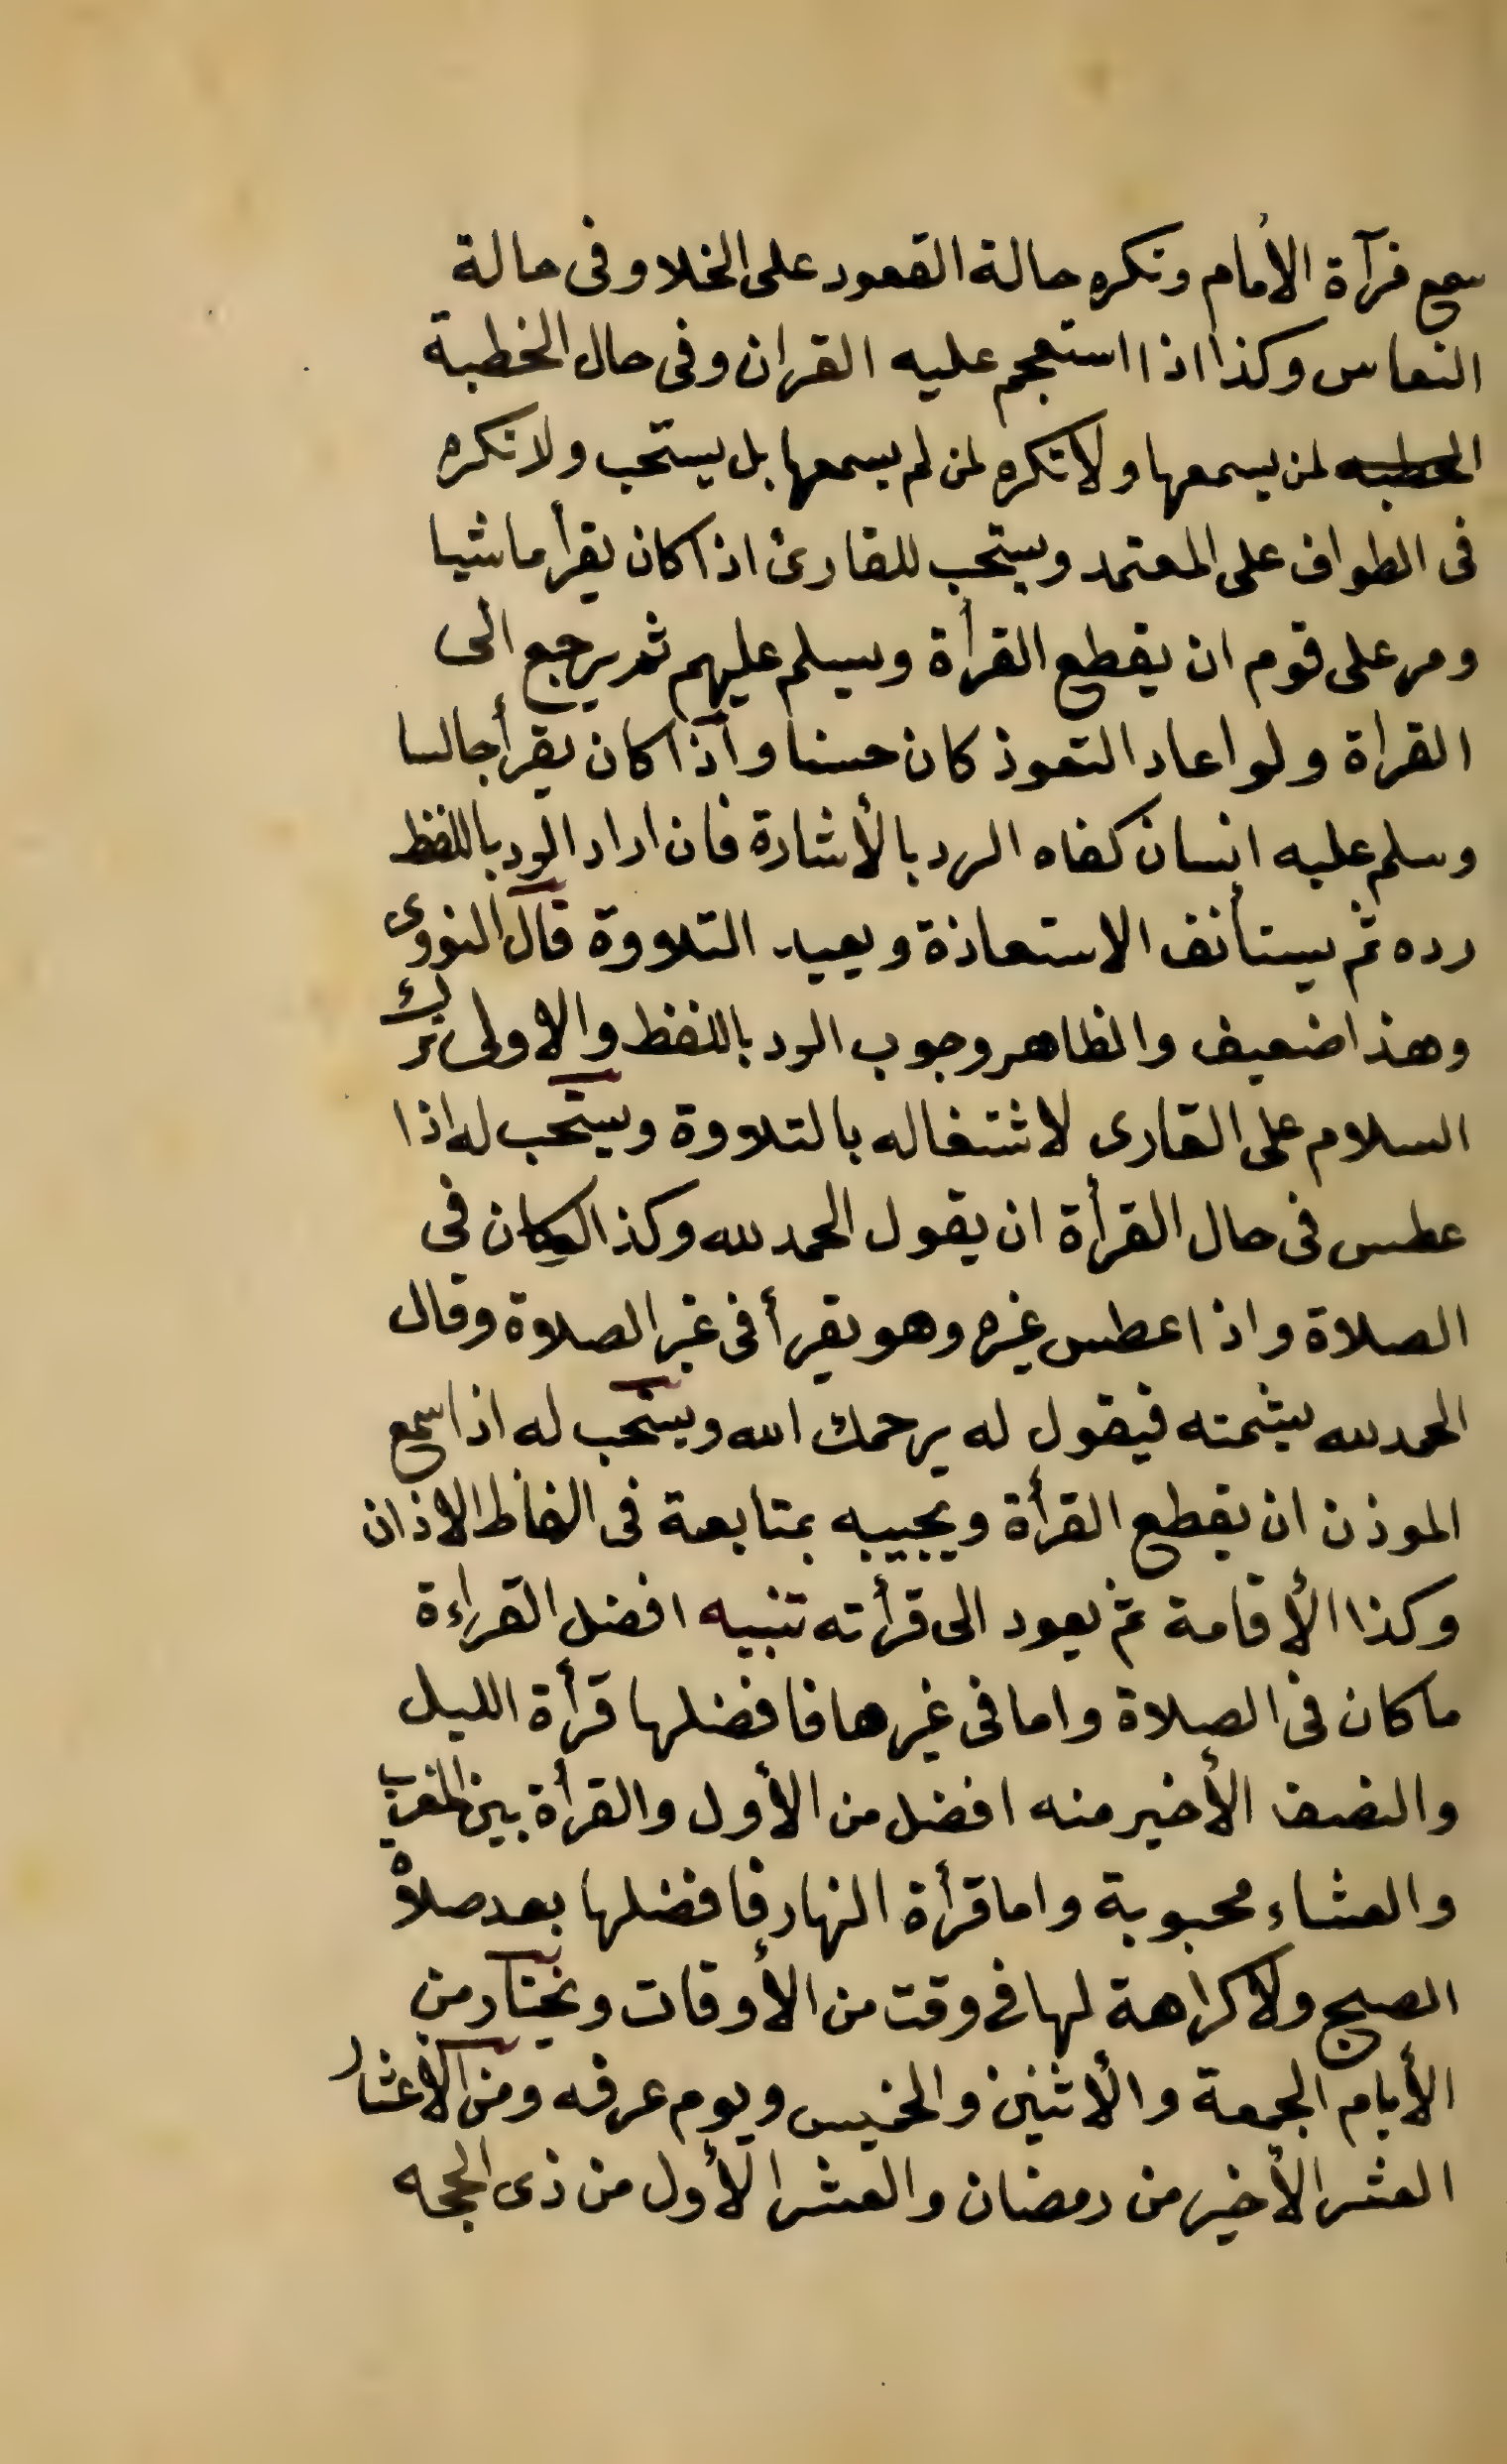 سمع قرآة الأمام وتكره حالة القعود على الخلا وفى حالة
النعاس وكذا اذا استعجم عليه القران وفى حال الخطبة
الخطبه لمن يسمعها ولا تكره لمن لم يسمعها بل يستحب ولا تكره
فى الطواف على المعتمد ويستحب للقارئ اذا كان يقرأ ماشيا
ومر على قوم ان يقطع القرأة ويسلم عليهم ثم يرجع الى
القراة ولو اعاد التعوذ كان حسنا واذا كان يقرأ جالسا
وسلم عليه انسان كفاه الرد بالأشارة فان اراد الرد باللفظ
رده ثم يستأنف الاستعاذة ويعيد التلاوة قال النووى
وهذا ضعيف والظاهر وجوب الرد باللفظ والاولى ترك
السلام على القارى لاشتغاله بالتلاوة ويستحب له اذا
عطس فى حال القرأة ان يقول الحمد لله وكذا لوكان فى
الصلاة واذا عطس غيره وهو يقرأ فى غير الصلاة وقال
الحمد لله يشمته فيقول له يرحمك الله ويستحب له اذا سمع
الموذن ان يقطع القرأة ويجيبه بمتابعة فى الفاظ الاذان
وكذا الأقامة ثم يعود الى قرأته تنبيه افضل القراءة
ما كان فى الصلاة واما فى غيرها فافضلها قرأة الليل
والنصف الأخير منه افضل من الأول والقرأة بين المغرب
والعشاء محبوبة واما قرأة النهار فافضلها بعد صلاة
الصبح ولا كراهة لها فى وقت من الأوقات ويختار من
الأيام الجمعة والأثنين والخميس ويوم عرفه ومن الاعشار
العشر الأخير من رمضان والعشر الأول من ذى الحجه